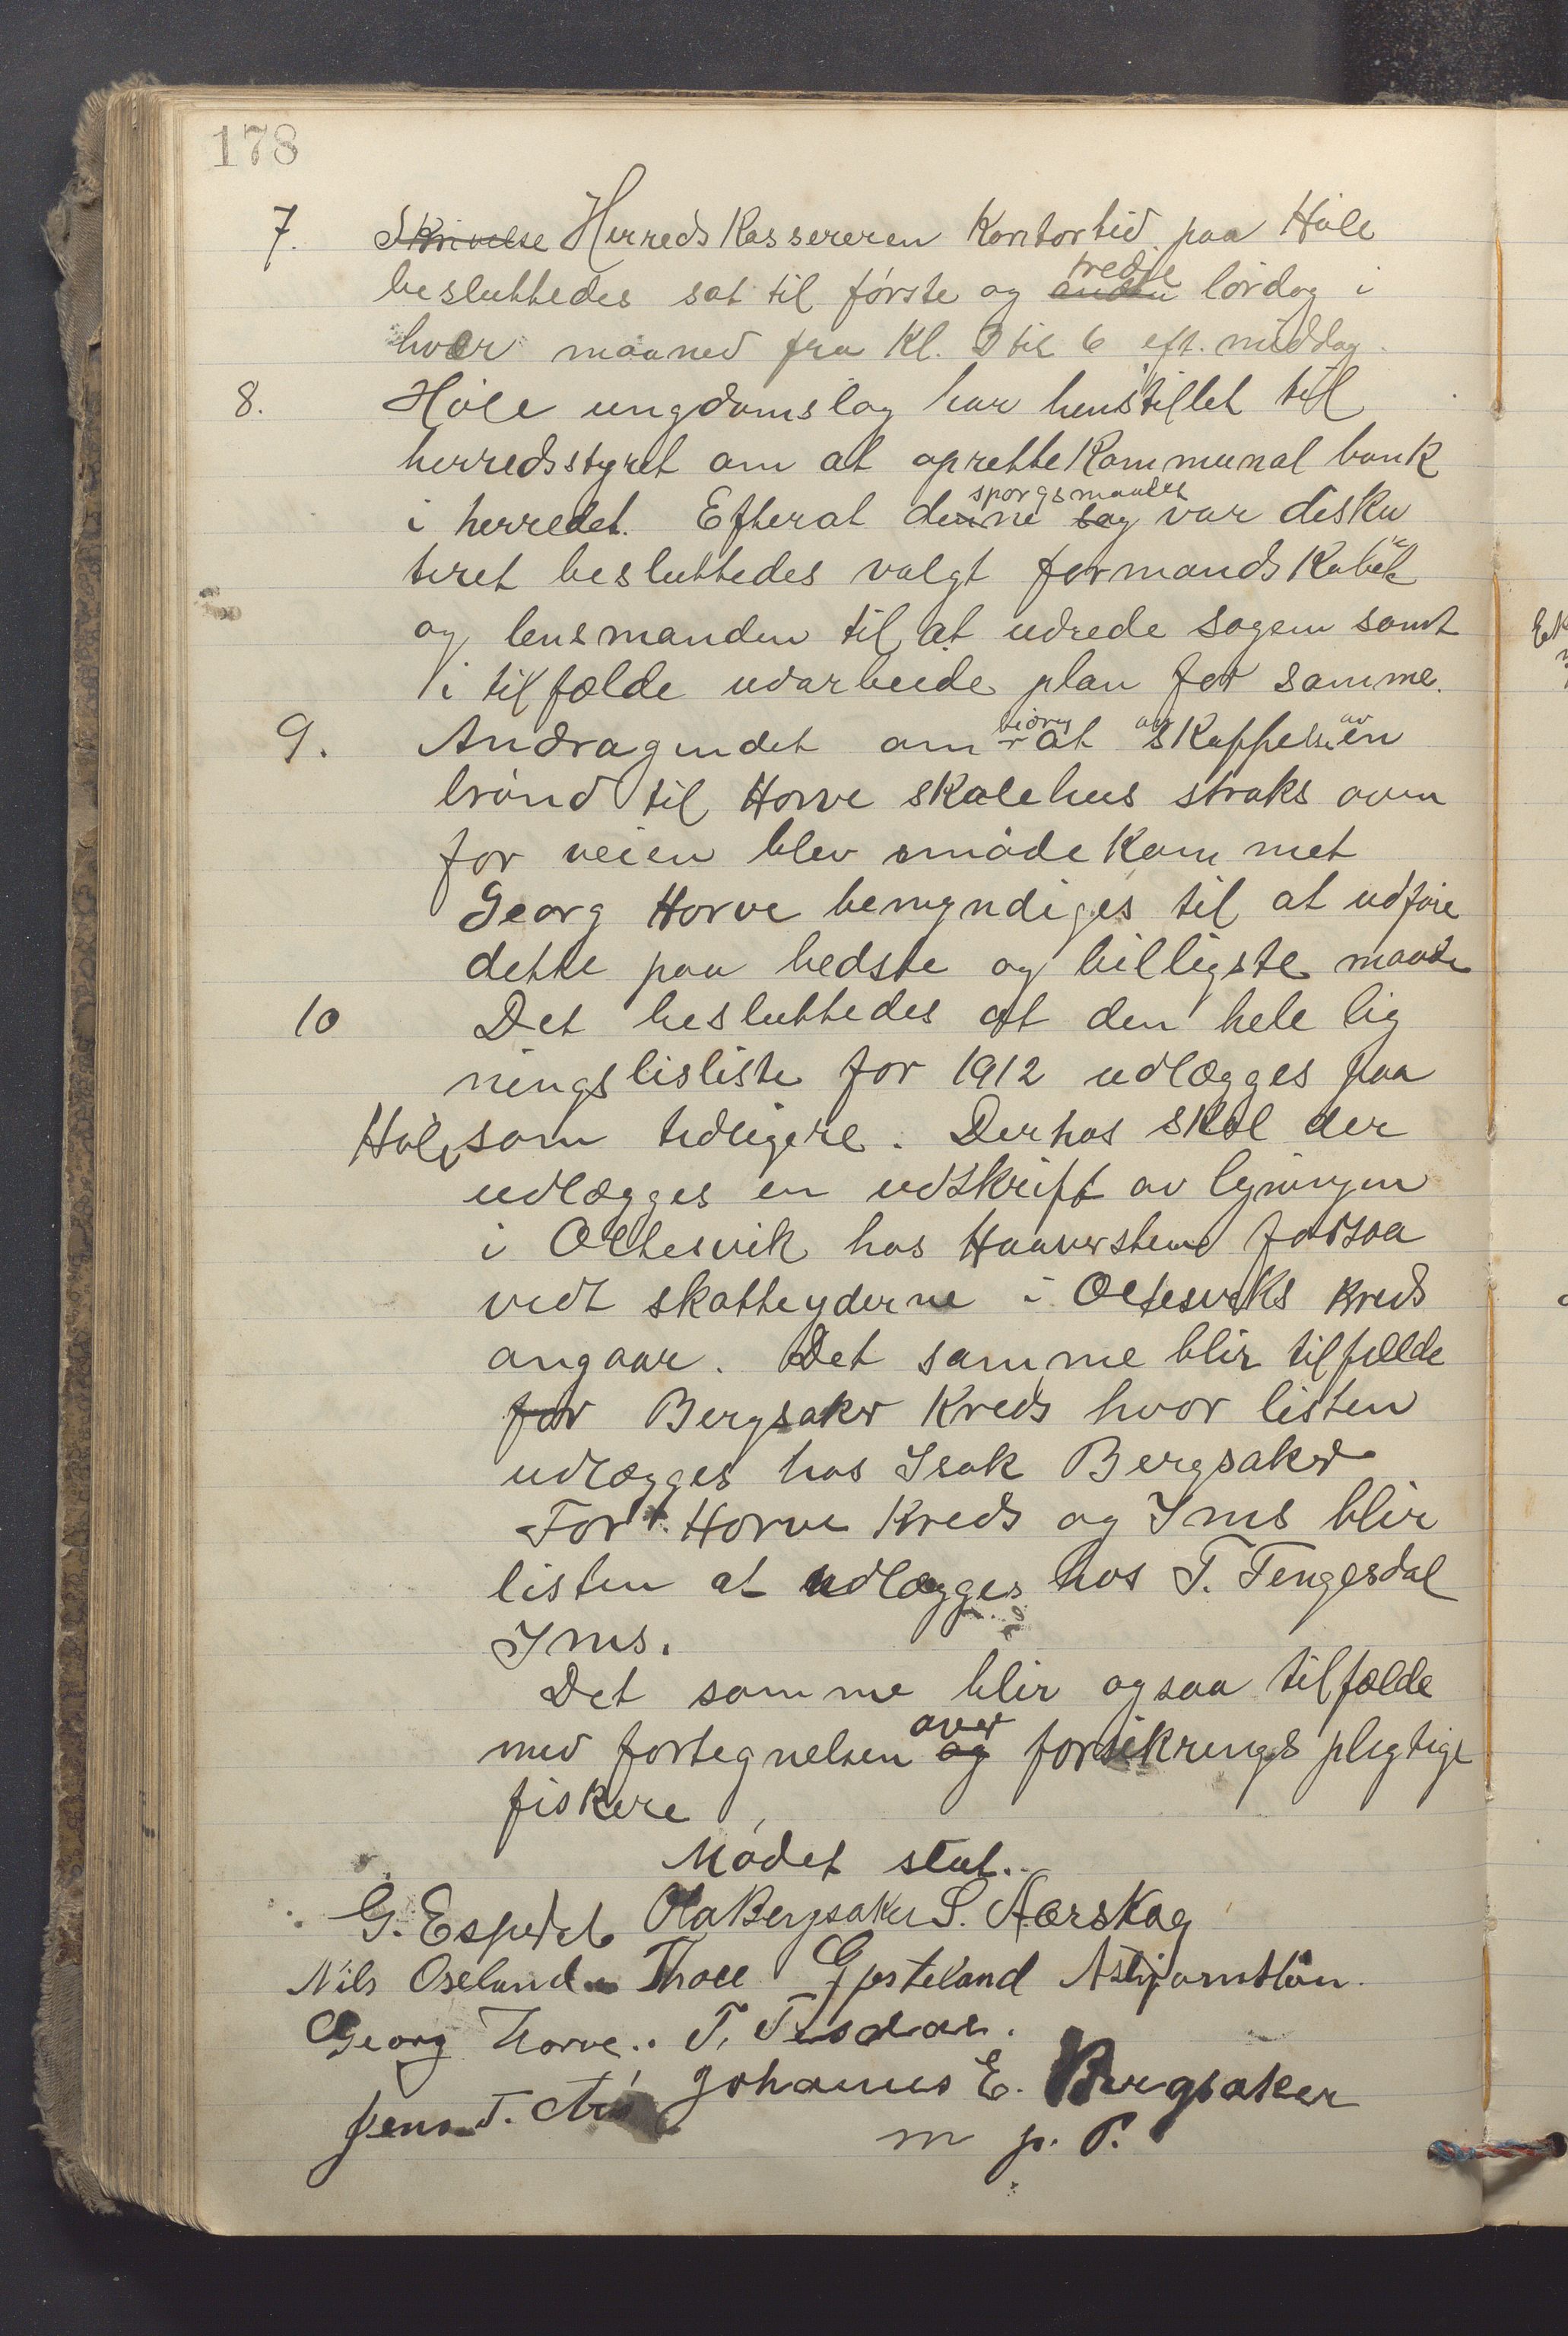 178
7. Skrivelse Herredskassereren Kontortid paa Høle
besluttedes sat til første og anden tredje lørdag i
hver maaned fra Kl. 3 til 6 eft. middag.
8. Høle ungdomslag har henstillet til
herredsstyret om at oprette Kommunal bank
i herredet. Efterat denne sag spørgsmaalet var disku
teret besluttedes valgt formandskabet
og lensmanden til at udrede sagen samt
i tilfælde udarbeide plan for samme.
9. Andragendet om bidrag at skaffelse av en
brønd til Horve skolehus straks oven
for veien blev imødekommet
Georg Horve bemyndiges til at udføre
dette paa bedste og billigste maade
10 Det besluttedes at den hele lig
ningslisliste for 1912 udlægges paa
Høle som tidligere. Derhos skal der
udlægges en udskrift av ligningen
i Oltesvik hos Haaverstein forsaa
vidt skatteyderne i Oltesviks Kreds
angaar. Det samme blir tilfælde
for Bergsaker Kreds hvor listen
udlægges hos Isak Bergsaker
For Horve Kreds og Ims blir
listen at udlægges hos T. Tengesdal
Ims.
Det samme blir ogsaa tilfælde
med fortegnelsen og over forsikringspligtige
fiskere
Mødet slut.
G. Espedal Ola Bergsaker S. Aarskog
Nils Oseland Tholl Gjesteland
Georg Horve. T.
Jens T. Johannes E. Bergsaker
m p. P.